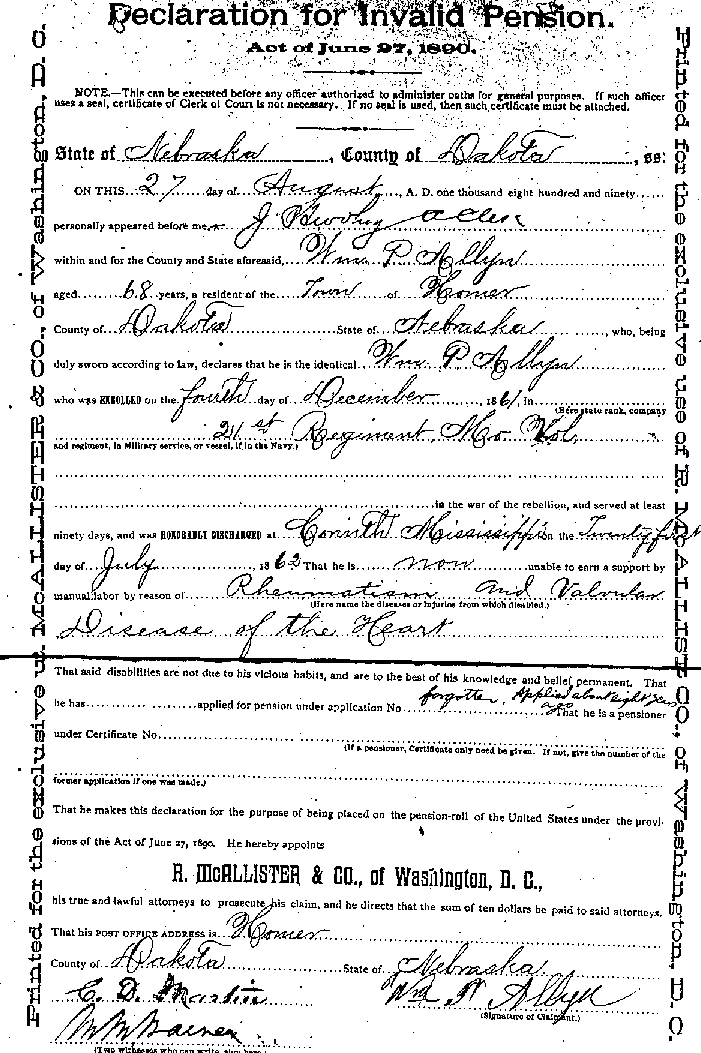 Declaration for Invalid Pension.
Act of June 27, 1890.
NOTE.—This can be executed before any officer authorized to administer oaths for general purposes. If such officer
uses a seal, certificate of Clerk of Court is not necessary. If no seal is used, then such certificate must be attached.
State of Nebraska, County of Dakota, ss:
ON THIS 27 day of August, A. D. one thousand eight hundred and ninety
personally appeared before me, J
within and for the County and State aforesaid, Wm P Allyn
aged 68 years, a resident of the Town of Homer
County of Dakota State of Nebraska, who, being
duly sworn according to law, declares that he is the identical Wm P Allyn
who was ENROLLED on the fourth day of December, 1861, in
(Here state rank, company
21st Regiment Mo Vol,
and regiment, in Military service, or vessel, if in the Navy.)
in the war of the rebellion, and served at least
ninety days, and was HONORABLY DISCHARGED at Corinth Mississippi on the Twenty first
day of July, 1862 That he is now unable to earn a support by
manual labor by reason of Rheumatism and Valvular
(Here name the diseases or injuries from which disabled.)
Disease of the Heart
That said disabilities are not due to his vicious habits, and are to the best of his knowledge and belief permanent. That
he has applied for pension under application No forgotten. Applied about eight years ago That he is a pensioner
under Certificate No
(If a pensioner, Certificate only need be given. If not, give the number of the
former application if one was made.)
That he makes this declaration for the purpose of being placed on the pension-roll of the United States under the provi-
sions of the Act of June 27, 1890. He hereby appoints
R. McALLISTER & CO., of Washington, D. C.,
his true and lawful attorneys to prosecute his claim, and he directs that the sum of ten dollars be paid to said attorneys.
That his POST OFFICE ADDRESS is Homer
County of Dakota State of Nebraska
C. D. Martin Wm P Allyn
(Signature of Claimant.)
(Two witnesses who can write, sign here.)
Printed for the exclusive use of R. McALLISTER & CO., of Washington, D. C.
Printed for the exclusive use of R. McALLISTER & CO., of Washington, D. C.